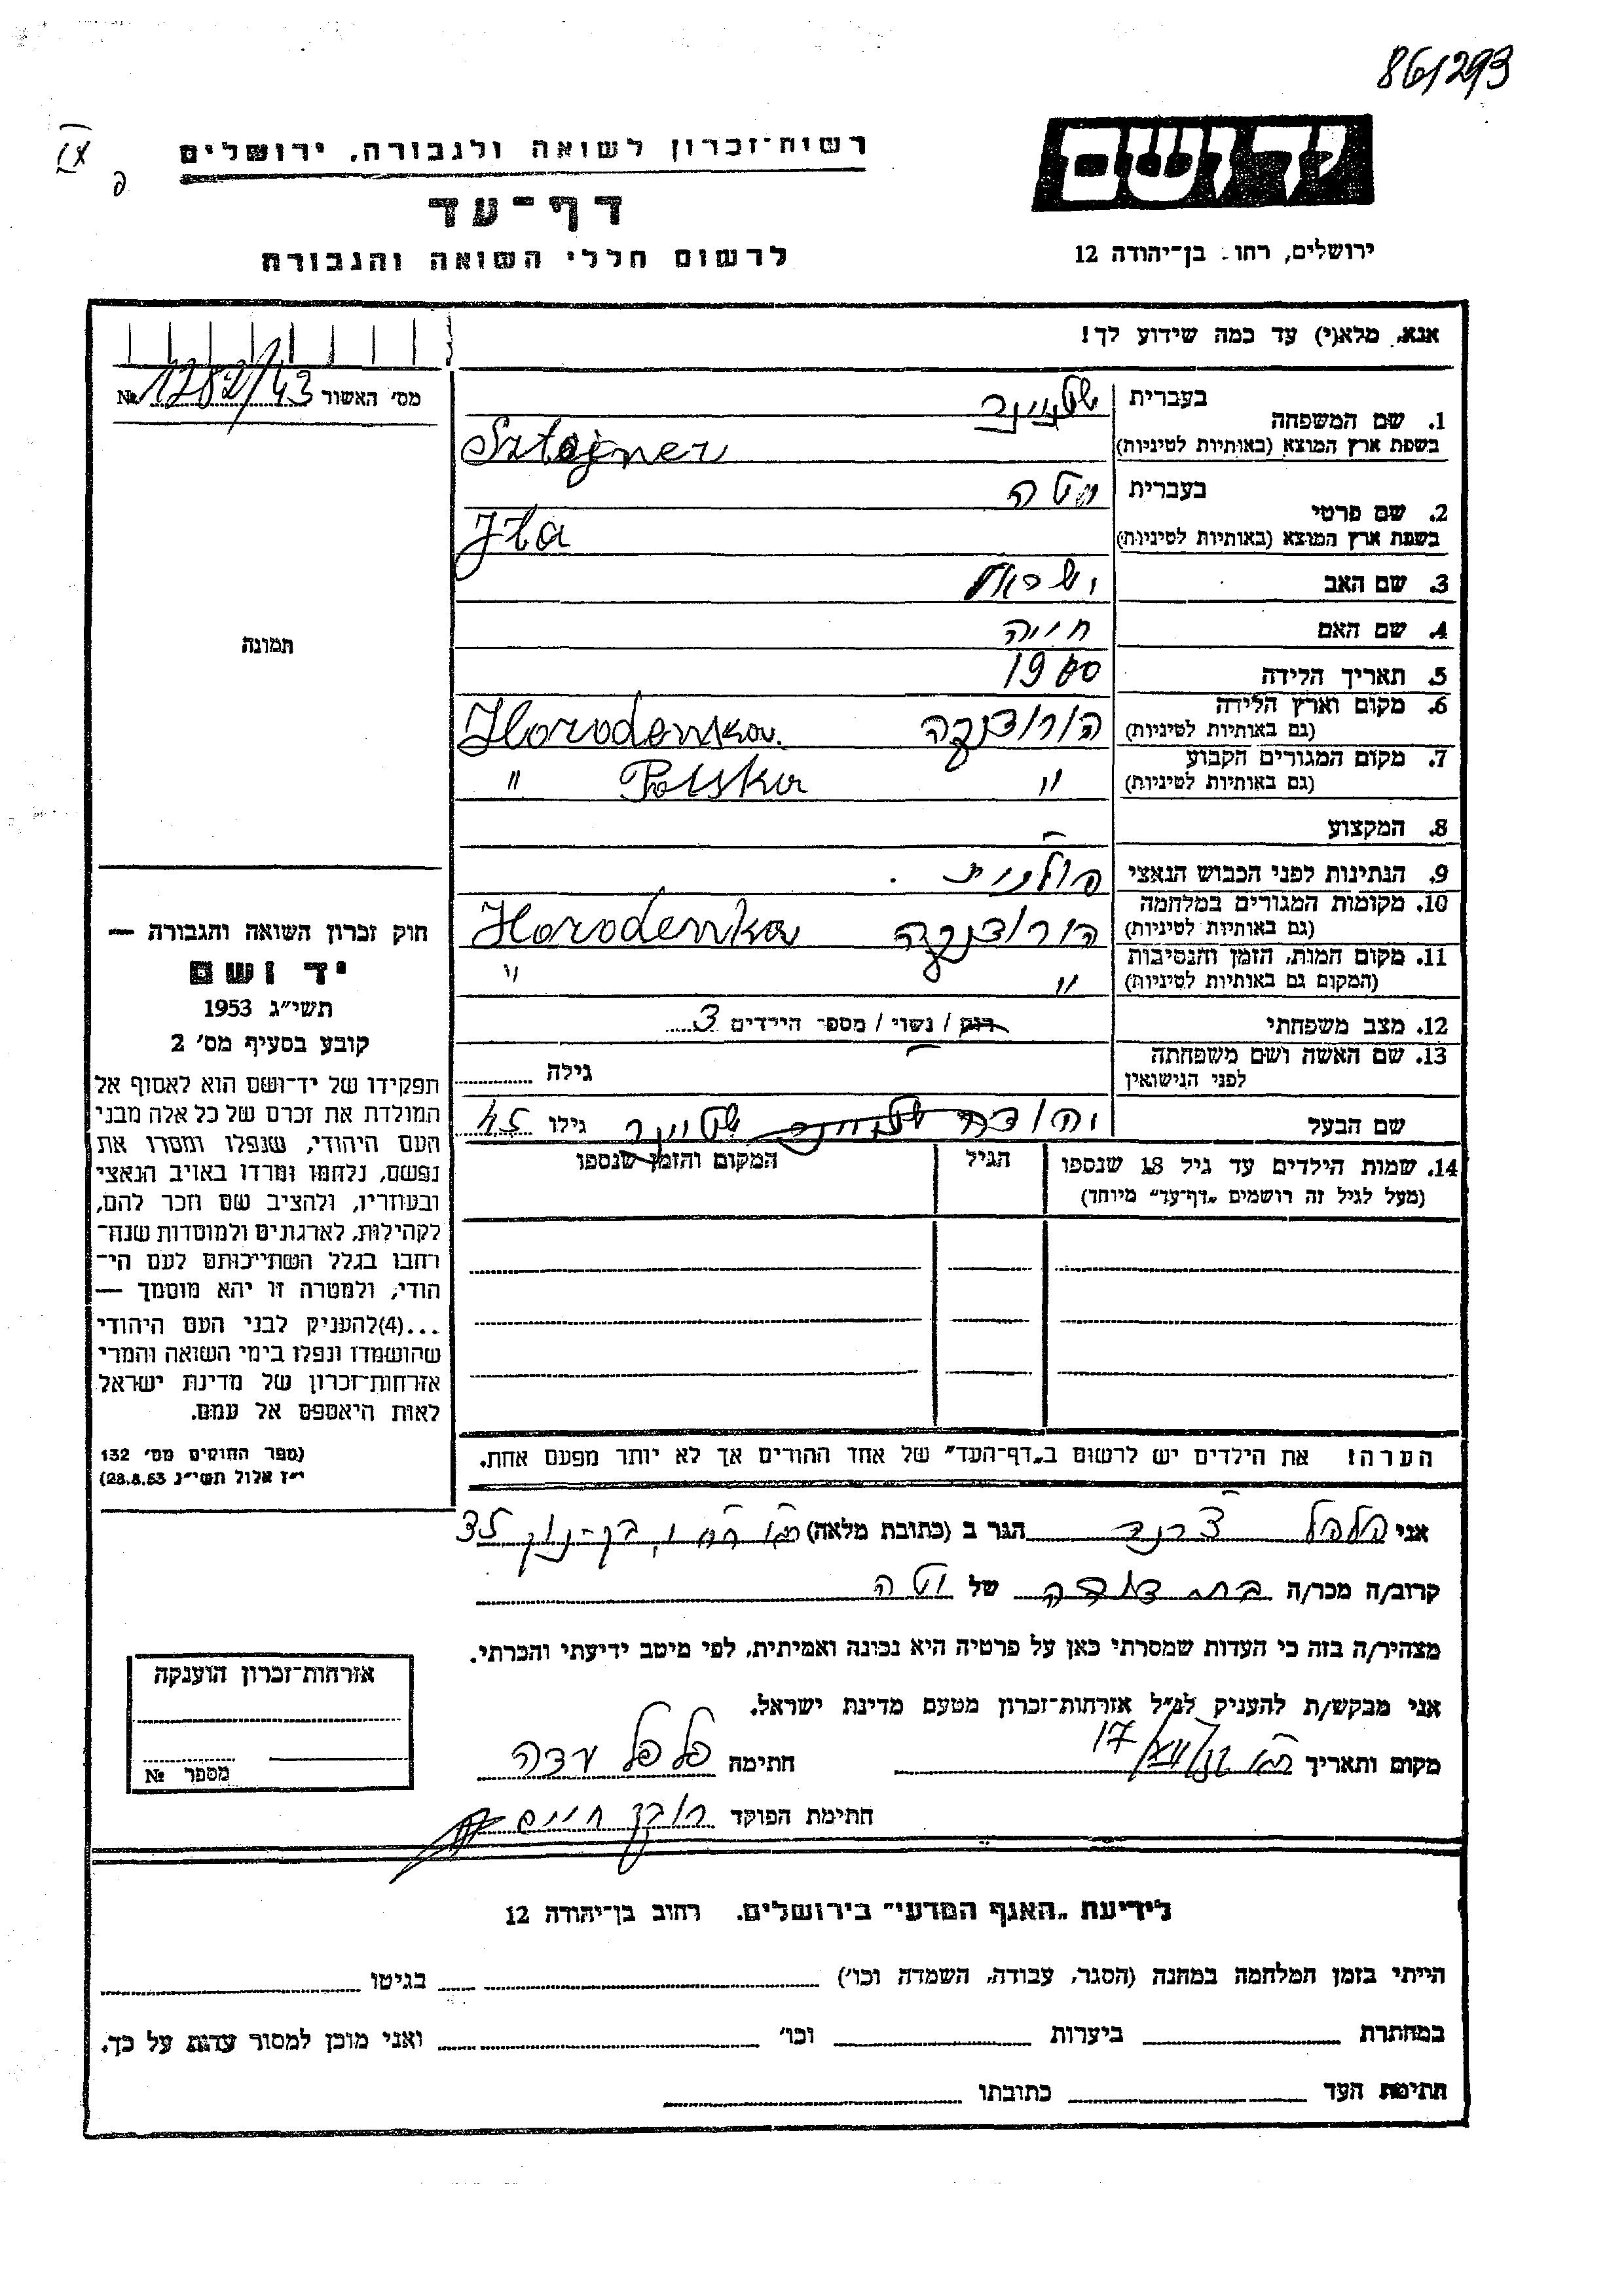 86/293
רשות־זכרון לשואה ולגבורה, ירושלים
דף־עד
לרשום חללי השואה והגבורה
IX
יד ושם
ירושלים, רחו. בן־יהודה 12
אנא, מלא(י) עד כמה שידוע לך!
מס׳ האשור 1282/43 №
1. שם המשפחה
בעברית
בשפת ארץ המוצא (באותיות לטיניות) Sztajner
2. שם פרטי
בעברית
בשפת ארץ המוצא (באותיות לטיניות) Ita
3. שם האב ישראל
4. שם האם חייה
5. תאריך הלידה 1900
6. מקום וארץ הלידה
(גם באותיות לטיניות) הורודנקה Horodenka
7. מקום המגורים הקבוע
(גם באותיות לטיניות) " Polska "
8. המקצוע –
9. הנתינות לפני הכבוש הנאצי פולנית
10. מקומות המגורים במלחמה
(גם באותיות לטיניות) הורודנקה Horodenka
11. מקום המות, הזמן והנסיבות
(המקום גם באותיות לטיניות) " "
12. מצב משפחתי רוק / נשוי / מספר הילדים 3
13. שם האשה ושם משפחתה
לפני הנישואין – גילה
שם הבעל יהודה שטינר גילו 45
14. שמות הילדים עד גיל 18 שנספו
(מעל לגיל זה רושמים „דף־עד״ מיוחד)
הגיל
המקום והזמן שנספו
הערה: את הילדים יש לרשום ב„דף־העד״ של אחד ההורים אך לא יותר מפעם אחת.
תמונה
חוק זכרון השואה והגבורה —
יד ושם
תשי״ג 1953
קובע בסעיף מס׳ 2
תפקידו של יד־ושם הוא לאסוף אל
המולדת את זכרם של כל אלה מבני
העם היהודי, שנפלו ומסרו את
נפשם, נלחמו ומרדו באויב הנאצי
ובעוזריו, ולהציב שם וזכר להם,
לקהילות, לארגונים ולמוסדות שנח־
רבו בגלל השתייכותם לעם הי־
הודי; ולמטרה זו יהא מוסמך —
...(4)להעניק לבני העם היהודי
שהושמדו ונפלו בימי השואה והמרי
אזרחות־זכרון של מדינת ישראל
לאות היאספם אל עמם.
(ספר החוקים מס׳ 132
י״ז אלול תשי״ג 28.8.53)
אני פלפל הגר ב (כתובת מלאה) בן־נון 35
קרוב/ה מכר/ה בת דודה של יטה
מצהיר/ה בזה כי העדות שמסרתי כאן על פרטיה היא נכונה ואמיתית, לפי מיטב ידיעתי והכרתי.
אני מבקש/ת להעניק לנ״ל אזרחות־זכרון מטעם מדינת ישראל.
מקום ותאריך חתימה פלפל עדה
חתימת הפוקד חיים
אזרחות־זכרון הוענקה
מספר №
לידיעת „האגף המדעי״ בירושלים. רחוב בן־יהודה 12
הייתי בזמן המלחמה במחנה (הסגר, עבודה, השמדה וכו׳) בגיטו
במחתרת ביערות וכו׳ ואני מוכן למסור עדות על כך.
חתימת העד כתובתו